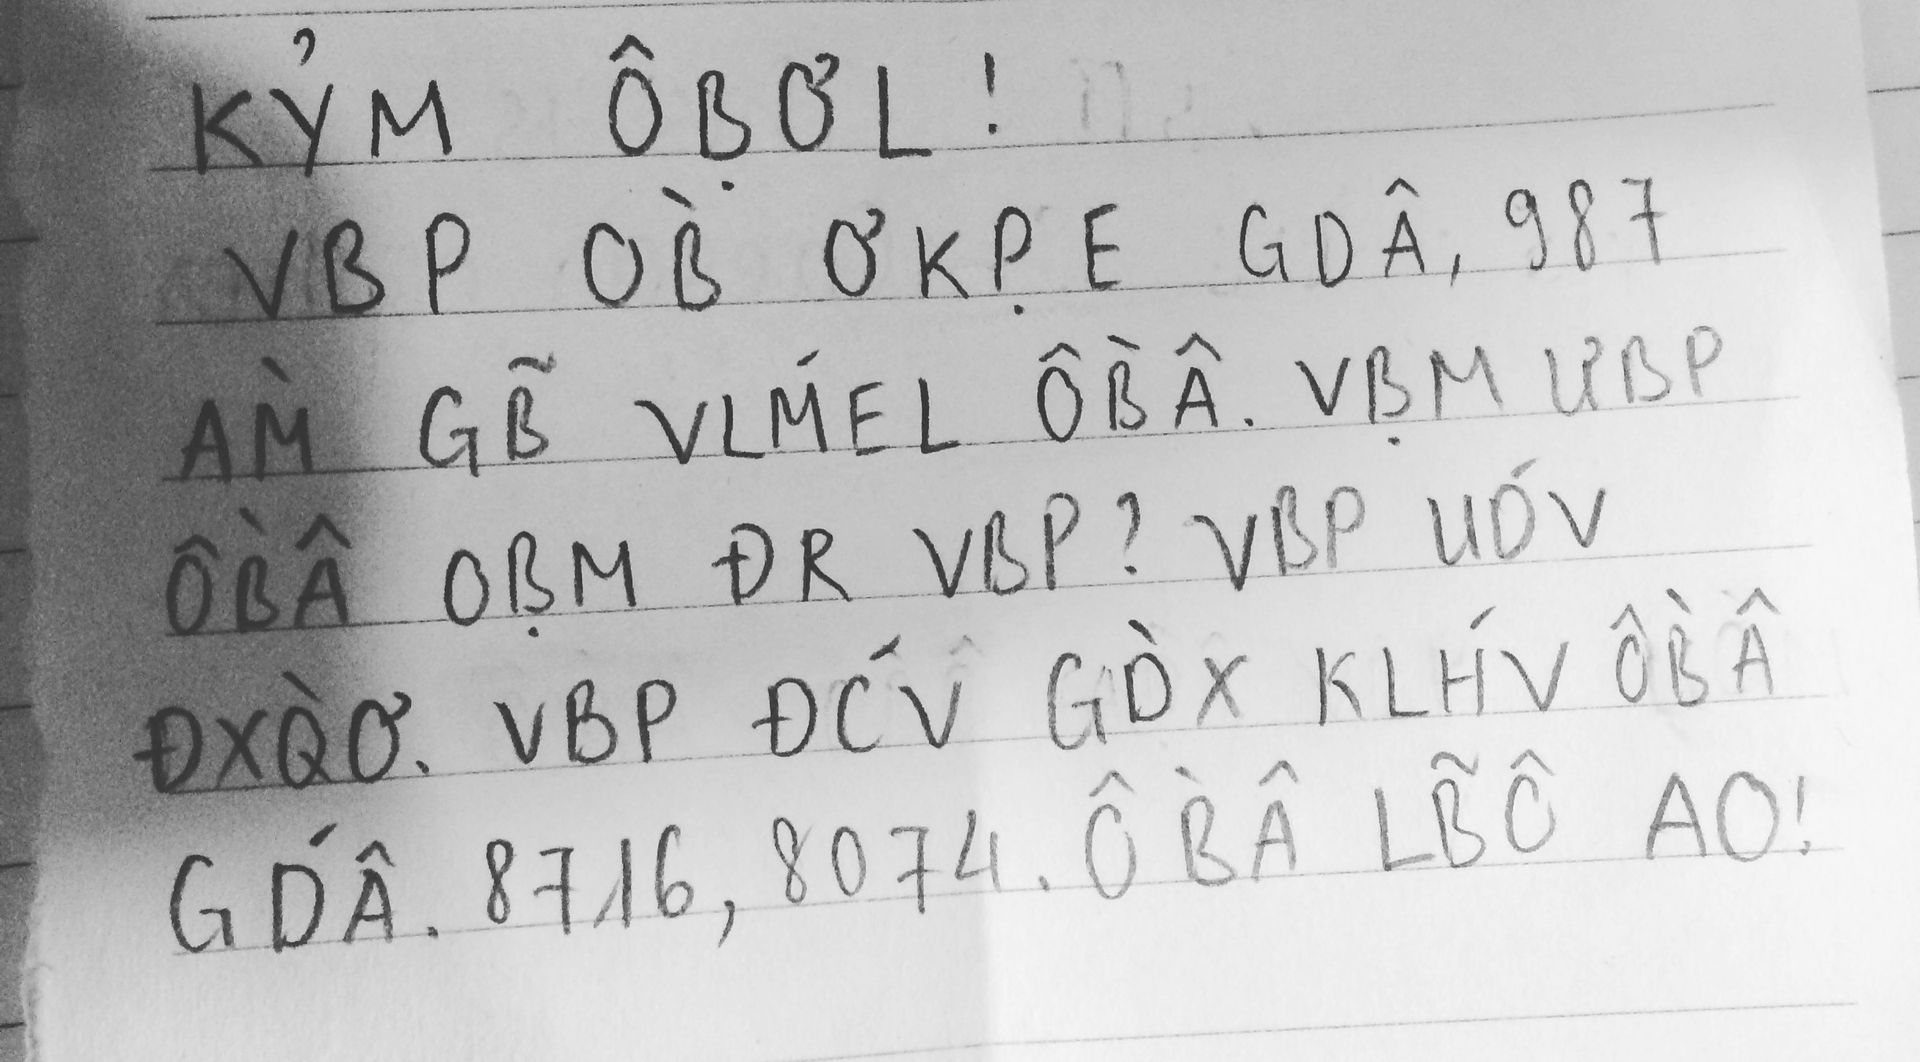 KỶM ÔḄƠL!
VBP OB̀ ƠKP̣E GDÂ, 987
AM̀ GB̃ VLḾEL ÔB̀Â. VḄM ƯBP
ÔB̀Â OḄM ĐR VBP? VBP UD́V
ĐXQ̀Ơ. VBP ĐĆV GD̀X KLH́V ÔB̀Â
GD́Â. 8716, 8074. ÔB̀Â LB̃Ô AO!